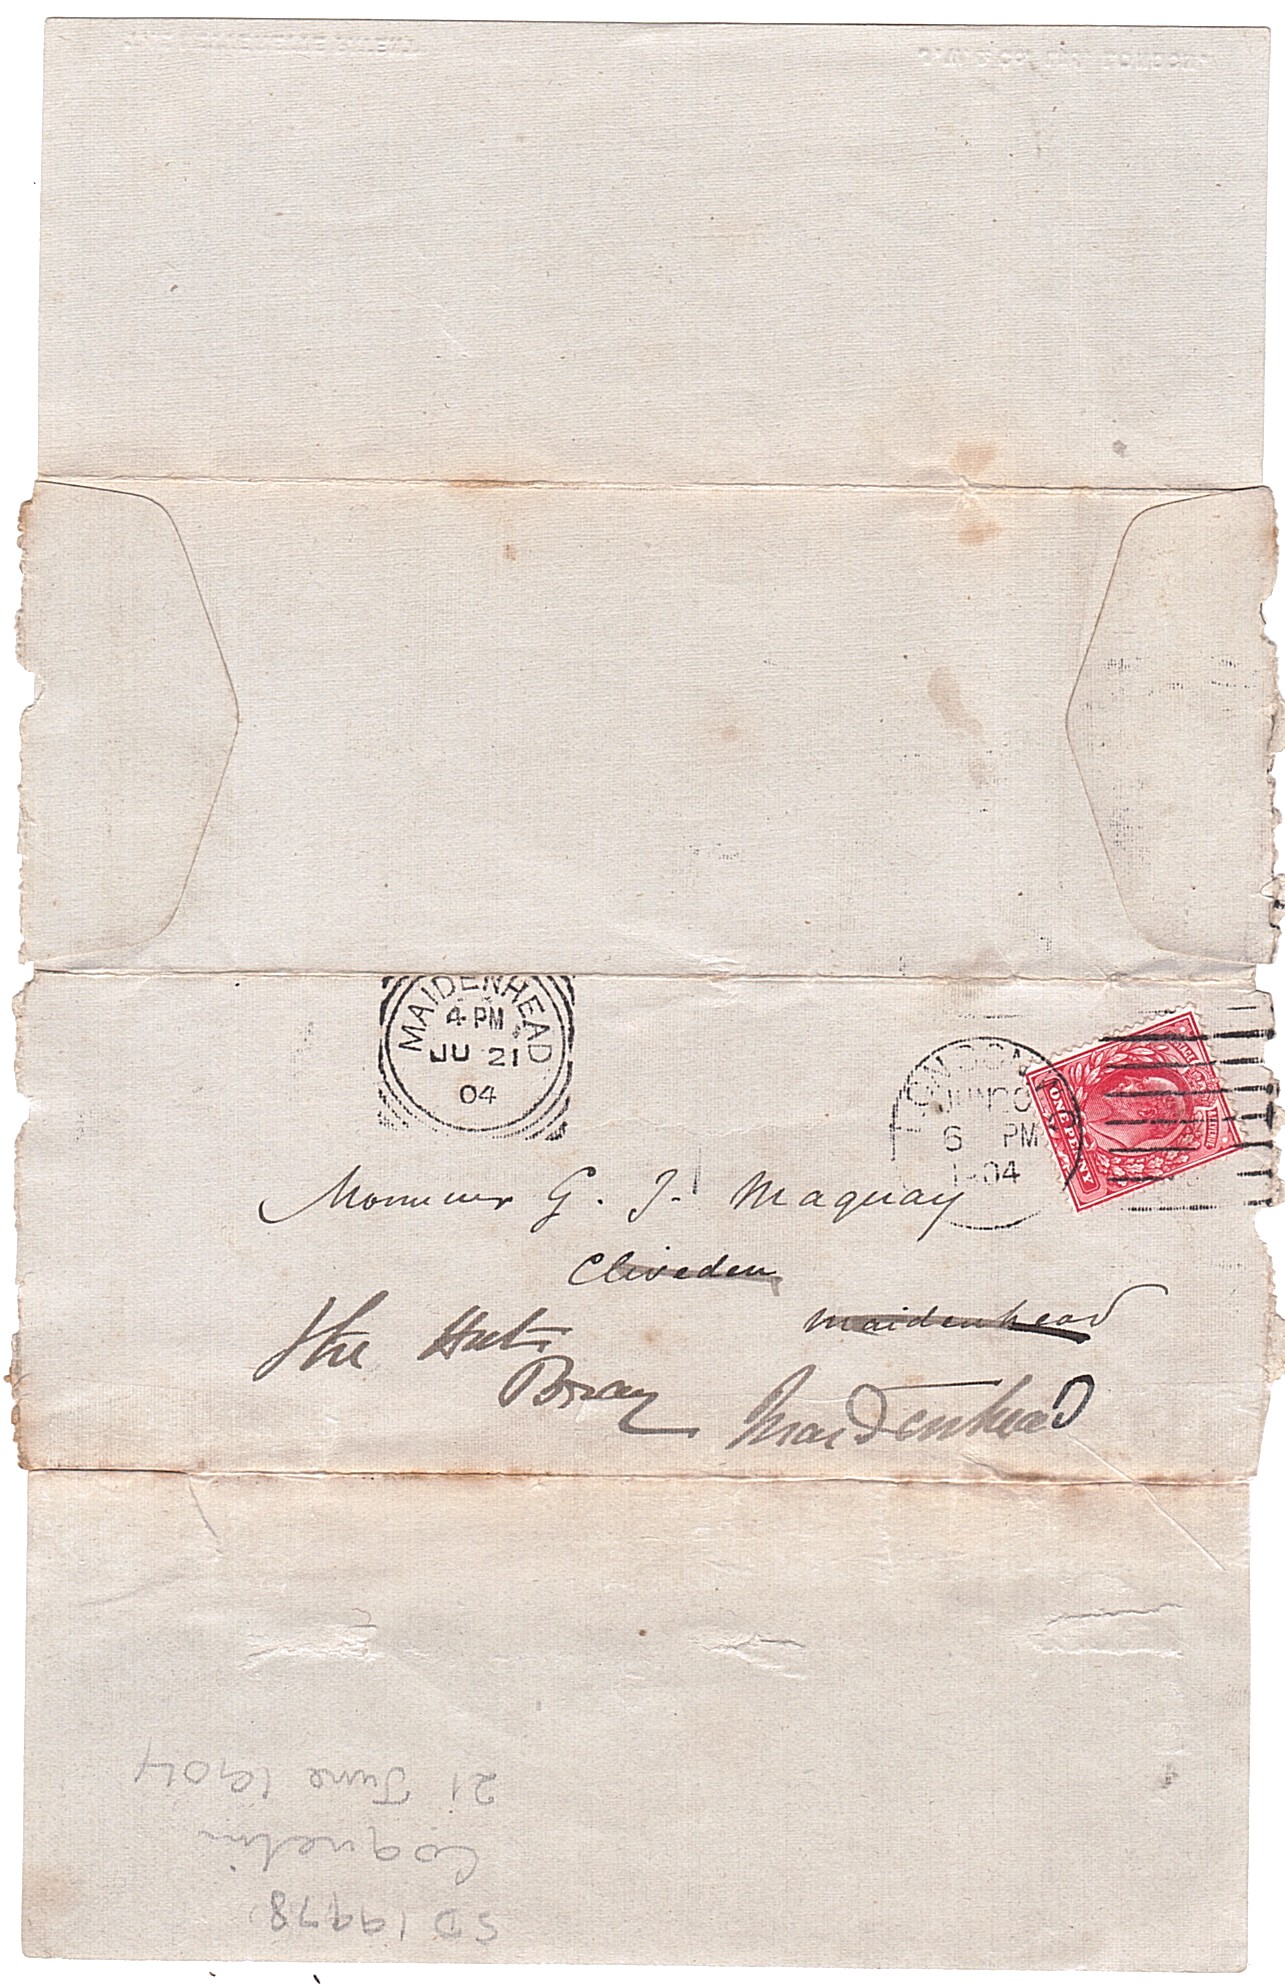 MAIDENHEAD
4 PM
JU 21
04
LONDON
JUN 20
6 PM
1904
ONE PENNY
Monsieur G. J. Maquay
Cliveden
Maidenhead
The Hut
Bray
Maidenhead
21 June 1904
Coquelin